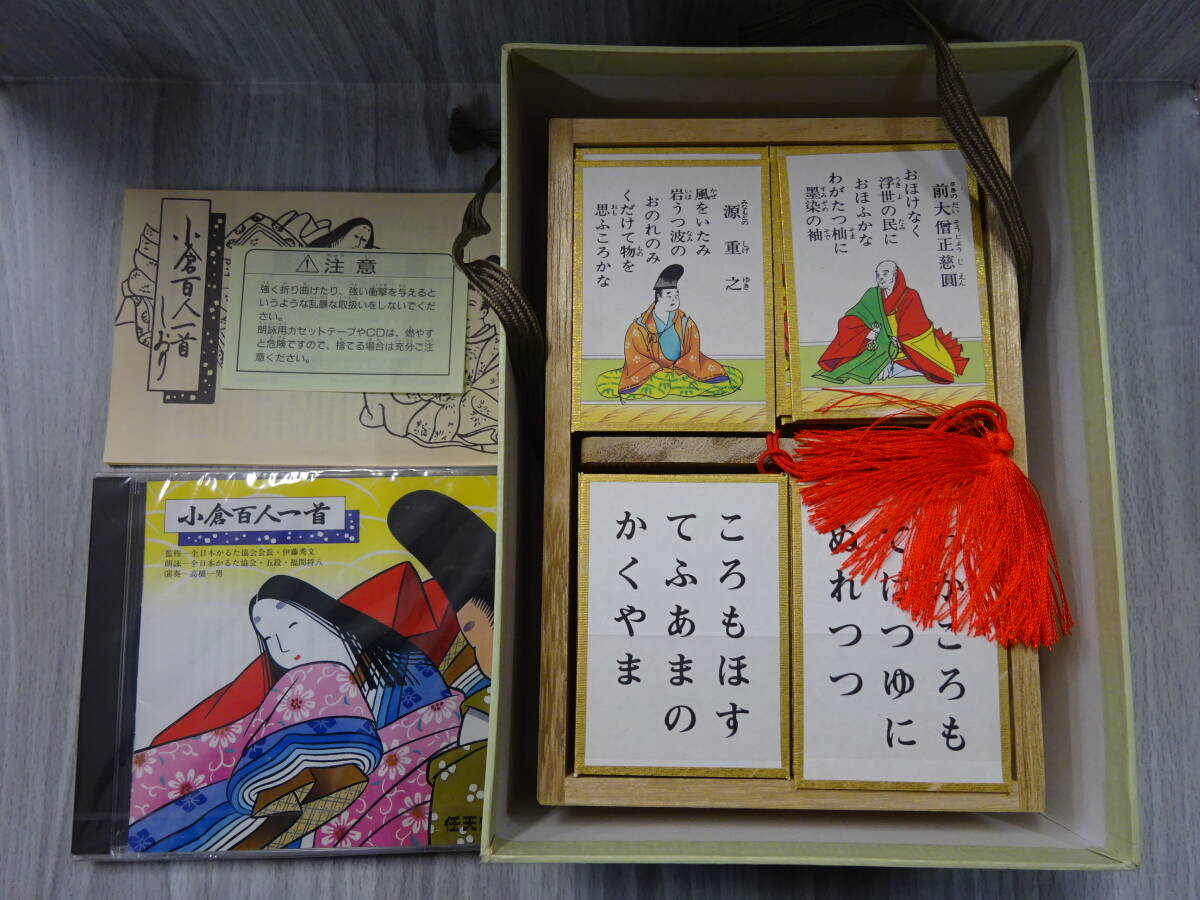 小倉百人一首
しおり
注意
強く折り曲げたり、強い衝撃を与えると
いうような乱暴な取扱いをしないでくだ
さい。
朗詠用カセットテープやCDは、燃やす
と危険ですので、捨てる場合は充分ご注
意ください。
小倉百人一首
監修―全日本かるた協会会長・伊藤秀文
朗詠―全日本かるた協会・五段・福間将八
演奏―高橋一男
任天
源重之
風をいたみ
岩うつ波の
おのれのみ
くだけて物を
思ふころかな
前大僧正慈圓
おほけなく
浮世の民に
おほふかな
わがたつ杣に
墨染の袖
ころもほす
てふあまの
かくやま
ころも
つゆに
ぬれつつ